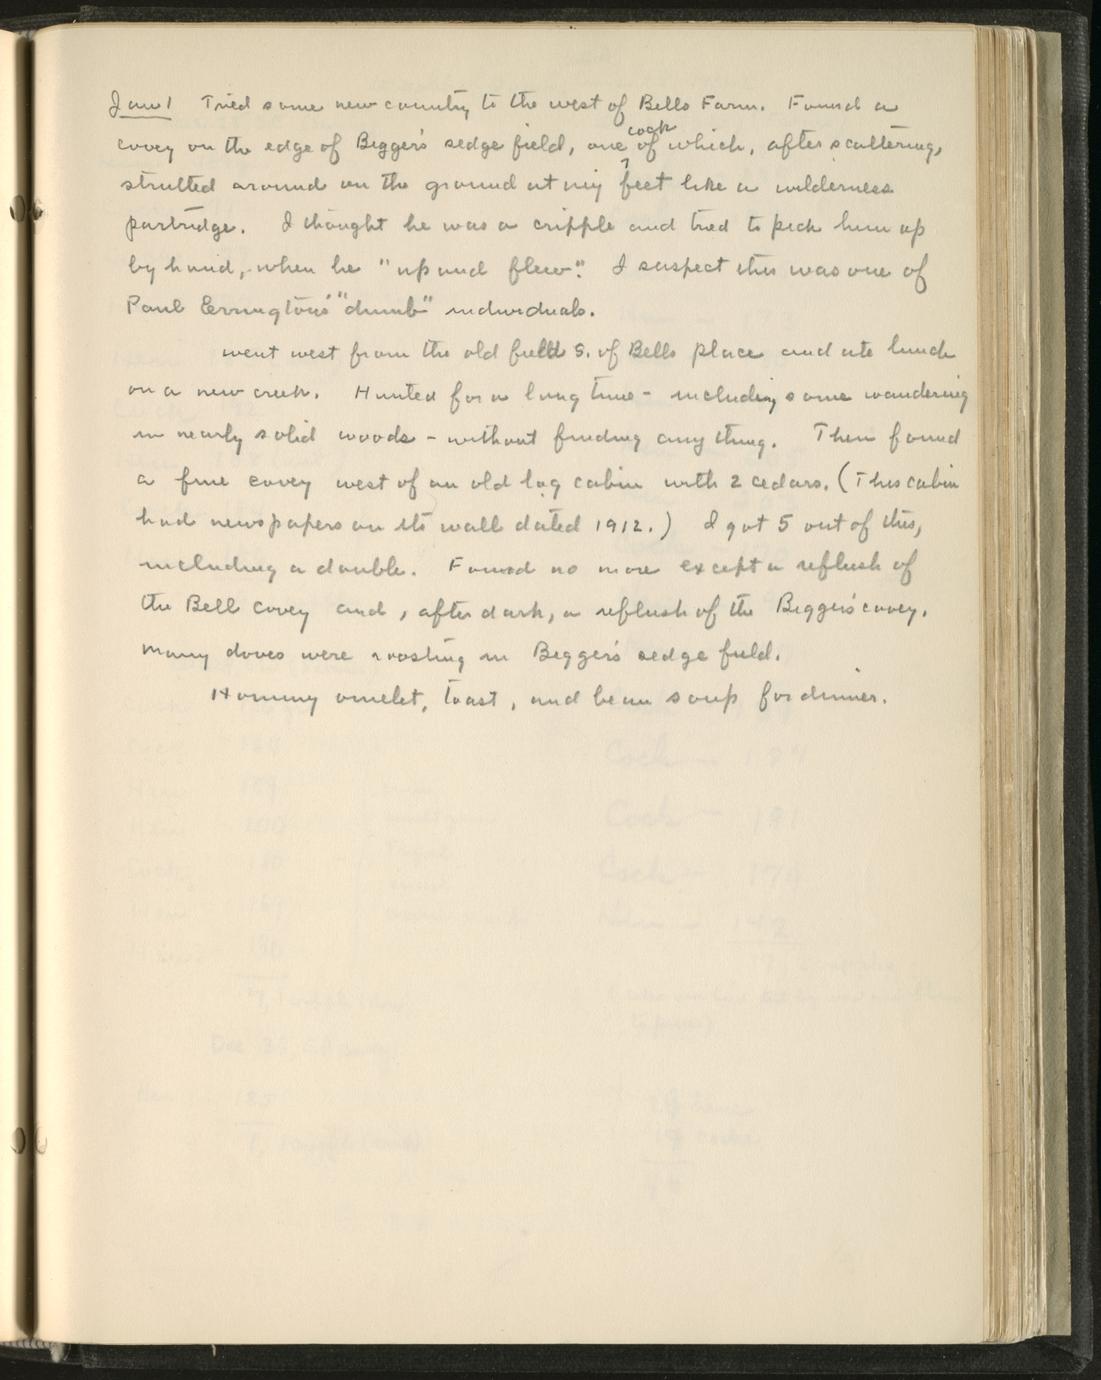 Jan 1 Tried some new country to the west of Bells Farm. Found a
covey on the edge of Bigger's sedge field, one cock of which, after scattering,
strutted around on the ground at my feet like a wilderness
partridge. I thought he was a cripple and tried to pick him up
by hand, when he "up and flew". I suspect this was one of
Paul Errington's "dumb" individuals.
Went west from the old field S. of Bells place and ate lunch
on a new creek. Hunted for a long time - including some wandering
in nearly solid woods - without finding any thing. Then found
a fine covey west of an old log cabin with 2 cedars. (This cabin
had newspapers on its wall dated 1912.) I got 5 out of this,
including a double. Found no more except a reflush of
the Bell covey and, after dark, a reflush of the Bigger's covey.
Many doves were roosting in Bigger's sedge field.
Hominy omelet, toast, and bean soup for dinner.